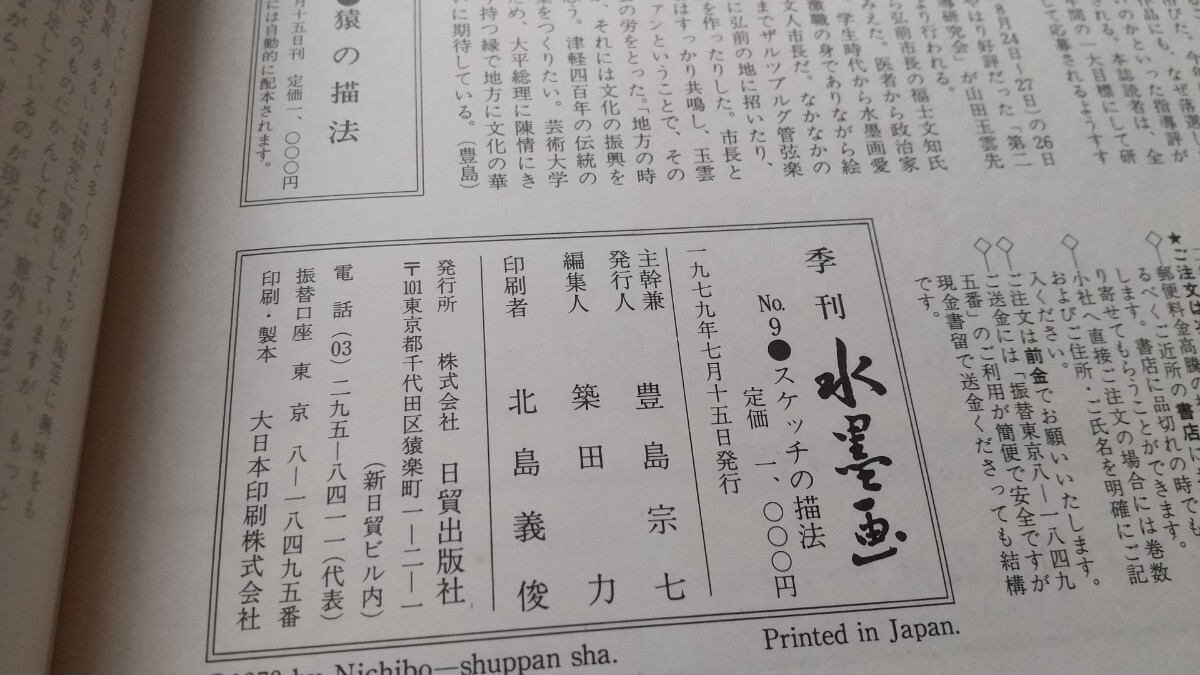 季刊 水墨画
No.9●スケッチの描法
定価 一、〇〇〇円
一九七九年七月十五日発行
主幹兼
発行人 豊島宗七
編集人 築田力
印刷者 北島義俊
発行所 株式会社 日貿出版社
〒101東京都千代田区猿楽町一—二—一
(新日貿ビル内)
電話(03)二九五—八四一一(代表)
振替口座 東京 八—一八四九五番
印刷・製本 大日本印刷株式会社
by Nichibo—shuppan sha.
Printed in Japan.
★ご注文は
郵便料金高騰の
るべくご近所の書店に
します。書店に品切れの時でも
り寄せてもらうことができます。
◇小社へ直接ご注文の場合には巻数
およびご住所・ご氏名を明確にご記
入ください。
◇ご注文は前金でお願いいたします。
◇ご送金には「振替東京八—一八四九
五番」のご利用が簡便で安全ですが
現金書留で送金くださっても結構
です。
作品にも、なぜ落選し
いのかといった指導評が
される。本誌読者は、全
年間の一大目標にして研
して応募されるようすす
8月24日〜27日)の26日
やはり好評だった「第二
導研究会」が山田玉雲先
より行われる。
ら弘前市長の福士文知氏
みえた。医者から政治家
、学生時代から水墨画愛
激職の身でありながら絵
文人市長だ。なかなかの
までザルツブルグ管弦楽
に弘前の地に招いたり、
を作ったりした。市長と
はすっかり共鳴し、玉雲
ァンということで、その
の労をとった。「地方の時
、それには文化の振興を
思う。津軽四百年の伝統の
室をつくりたい。芸術大学
ため、大平総理に陳情にき
り持つ縁で地方に文化の華
いに期待している。(豊島)
●猿の描法
月十五日刊 定価一、〇〇〇円
には自動的に配本されます。